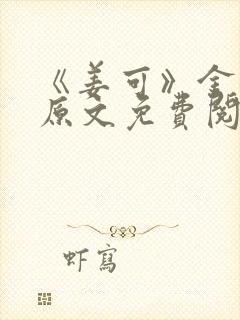 《姜可》全
原文免費閱
虾寫